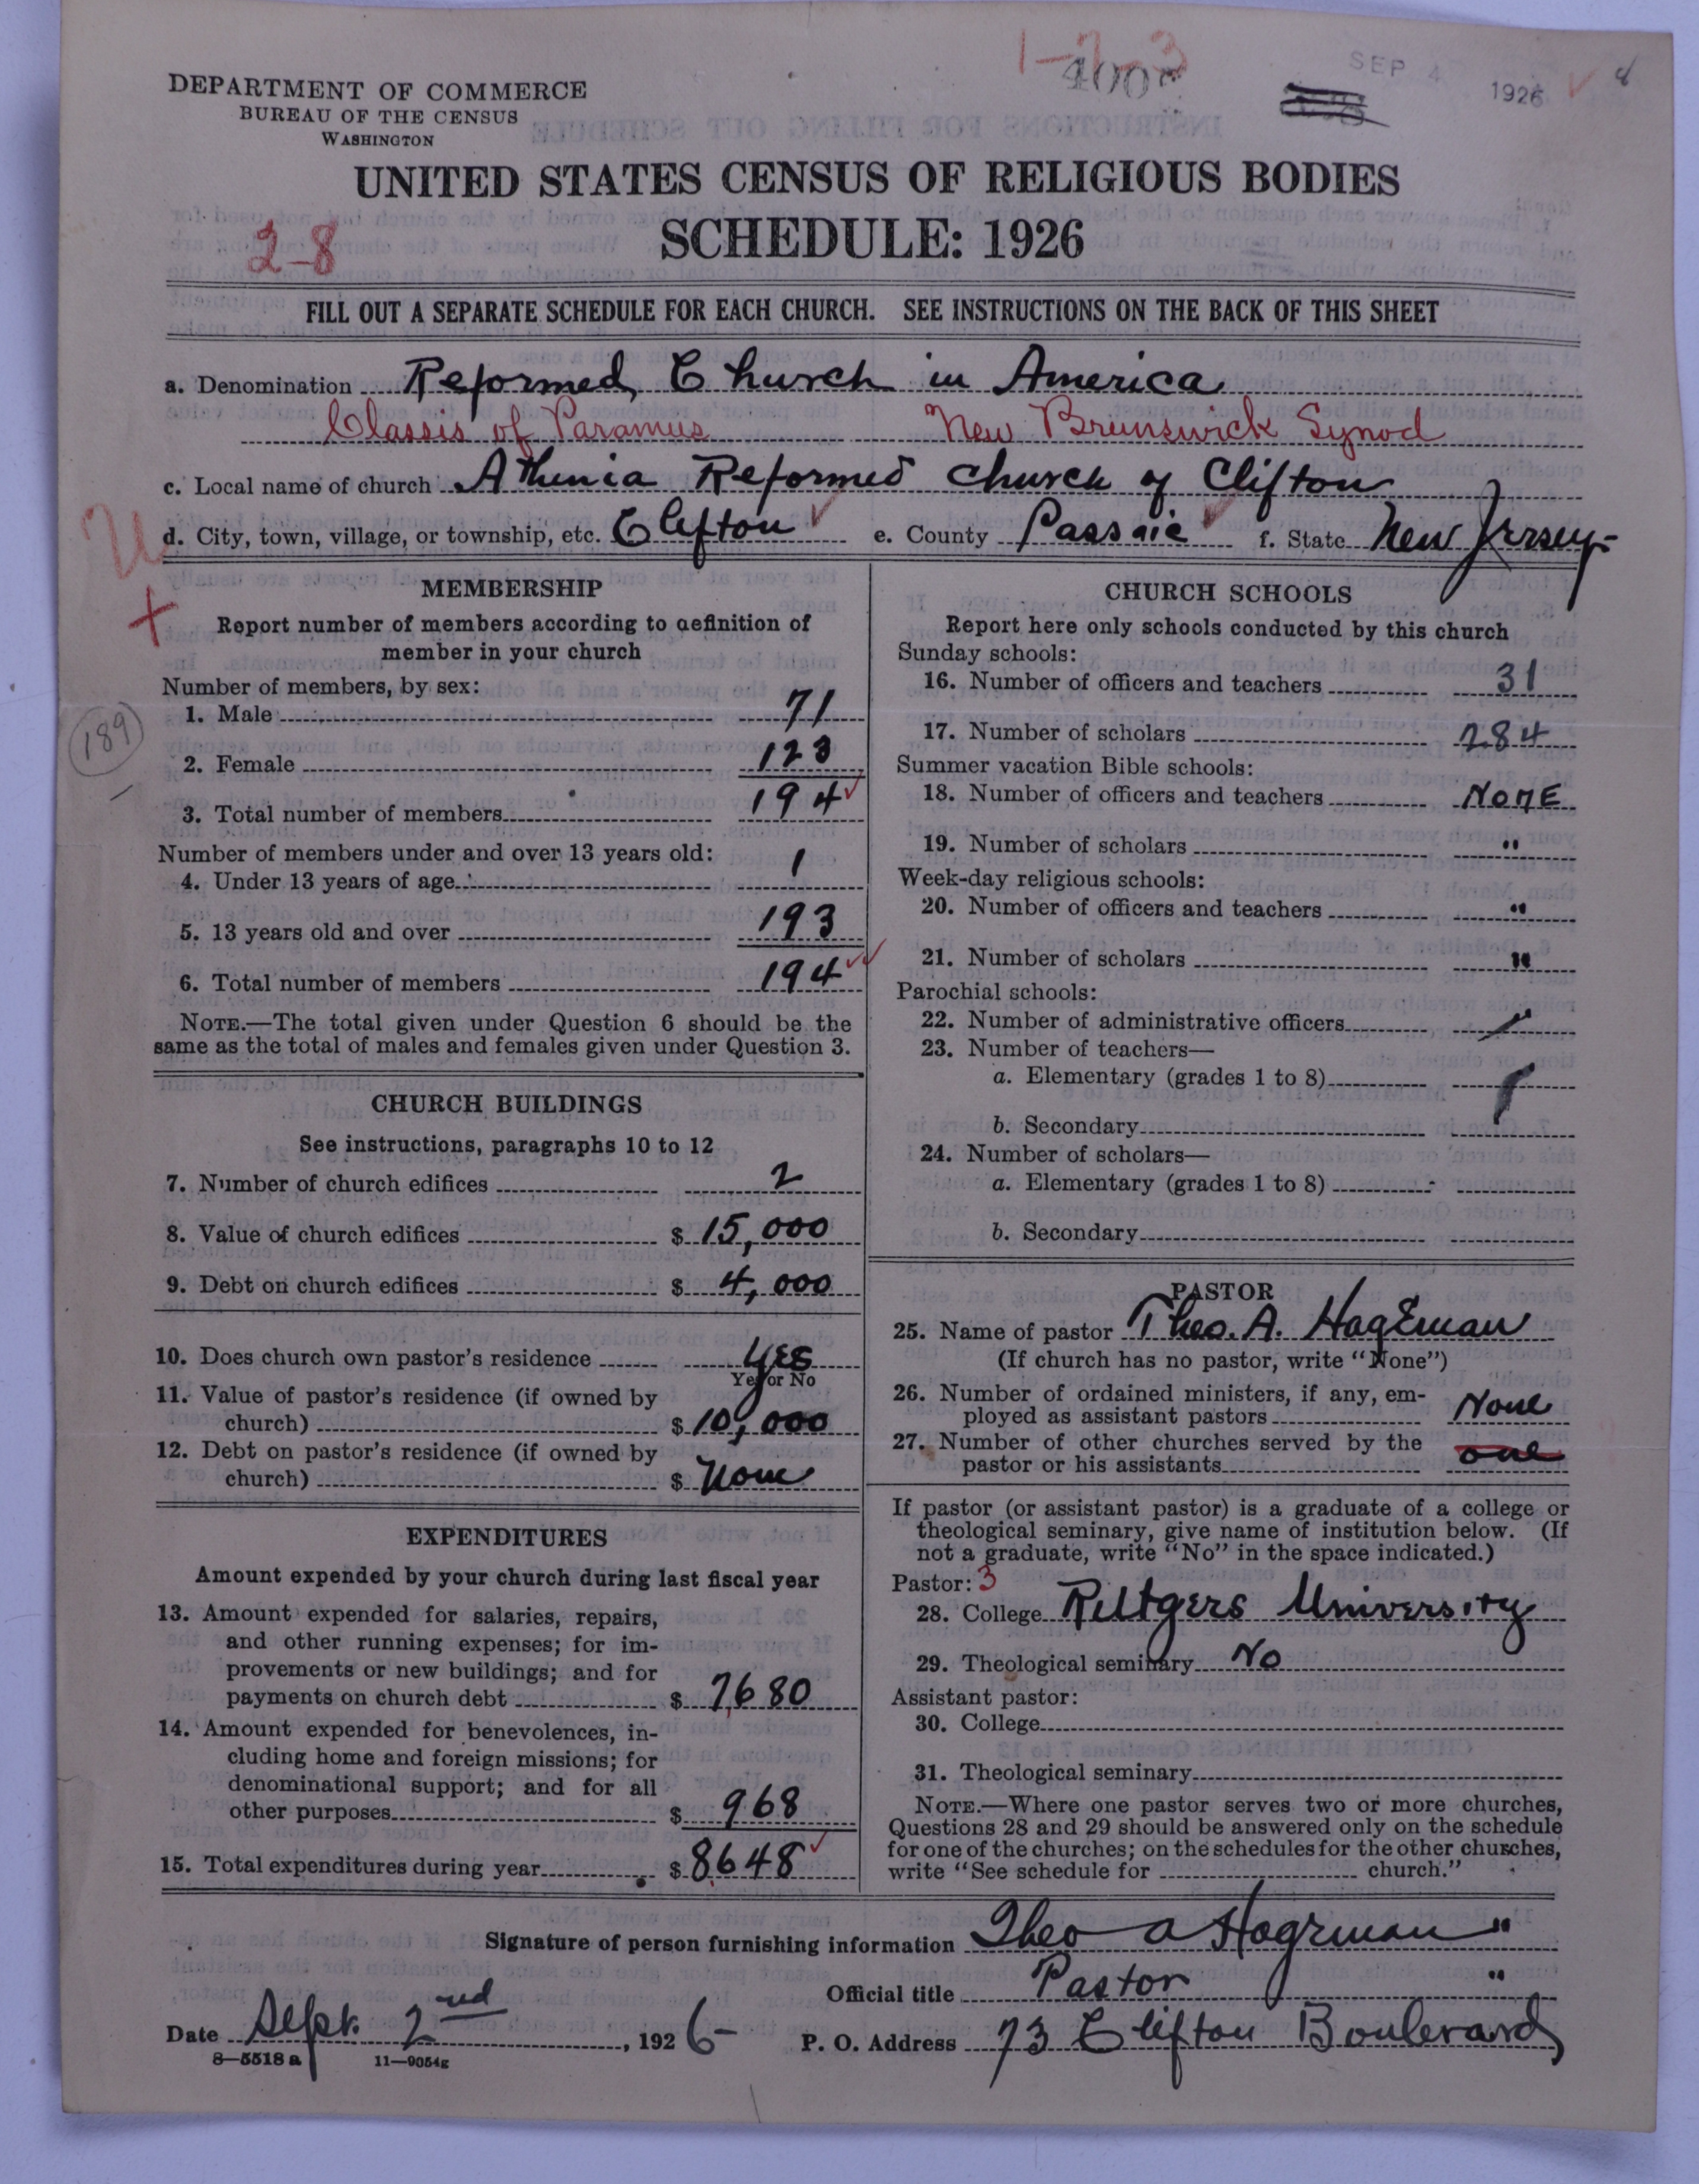 1-2-3
400
SEP 4 1926
DEPARTMENT OF COMMERCE
BUREAU OF THE CENSUS
WASHINGTON
UNITED STATES CENSUS OF RELIGIOUS BODIES
SCHEDULE: 1926
2-8
FILL OUT A SEPARATE SCHEDULE FOR EACH CHURCH. SEE INSTRUCTIONS ON THE BACK OF THIS SHEET
a. Denomination Reformed Church in America
Classis of Paramus New Brunswick Synod
c. Local name of church Athenia Reformed Church of Clifton
d. City, town, village, or township, etc. Clifton e. County Passaic f. State New Jersey
MEMBERSHIP
Report number of members according to definition of
member in your church
Number of members, by sex:
1. Male 71
2. Female 123
189
3. Total number of members 194
Number of members under and over 13 years old:
4. Under 13 years of age 1
5. 13 years old and over 193
6. Total number of members 194
NOTE.—The total given under Question 6 should be the
same as the total of males and females given under Question 3.
CHURCH BUILDINGS
See instructions, paragraphs 10 to 12
7. Number of church edifices 2
8. Value of church edifices $ 15,000
9. Debt on church edifices $ 4,000
10. Does church own pastor's residence Yes
Yes or No
11. Value of pastor's residence (if owned by
church) $ 10,000
12. Debt on pastor's residence (if owned by
church) $ None
EXPENDITURES
Amount expended by your church during last fiscal year
13. Amount expended for salaries, repairs,
and other running expenses; for im-
provements or new buildings; and for
payments on church debt $ 7680
14. Amount expended for benevolences, in-
cluding home and foreign missions; for
denominational support; and for all
other purposes $ 968
15. Total expenditures during year $ 8648
CHURCH SCHOOLS
Report here only schools conducted by this church
Sunday schools:
16. Number of officers and teachers 31
17. Number of scholars 284
Summer vacation Bible schools:
18. Number of officers and teachers None
19. Number of scholars "
Week-day religious schools:
20. Number of officers and teachers "
21. Number of scholars "
Parochial schools:
22. Number of administrative officers
23. Number of teachers—
a. Elementary (grades 1 to 8)
b. Secondary
24. Number of scholars—
a. Elementary (grades 1 to 8)
b. Secondary
PASTOR
25. Name of pastor Theo. A. Hageman
(If church has no pastor, write "None")
26. Number of ordained ministers, if any, em-
ployed as assistant pastors None
27. Number of other churches served by the
pastor or his assistants one
If pastor (or assistant pastor) is a graduate of a college or
theological seminary, give name of institution below. (If
not a graduate, write "No" in the space indicated.)
Pastor: 3
28. College Rutgers University
29. Theological seminary No
Assistant pastor:
30. College
31. Theological seminary
NOTE.—Where one pastor serves two or more churches,
Questions 28 and 29 should be answered only on the schedule
for one of the churches; on the schedules for the other churches,
write "See schedule for church."
Signature of person furnishing information Theo A Hageman "
Official title Pastor "
Date Sept. 2nd, 1926 P. O. Address 73 Clifton Boulevard
8—5518 a 11—9054g